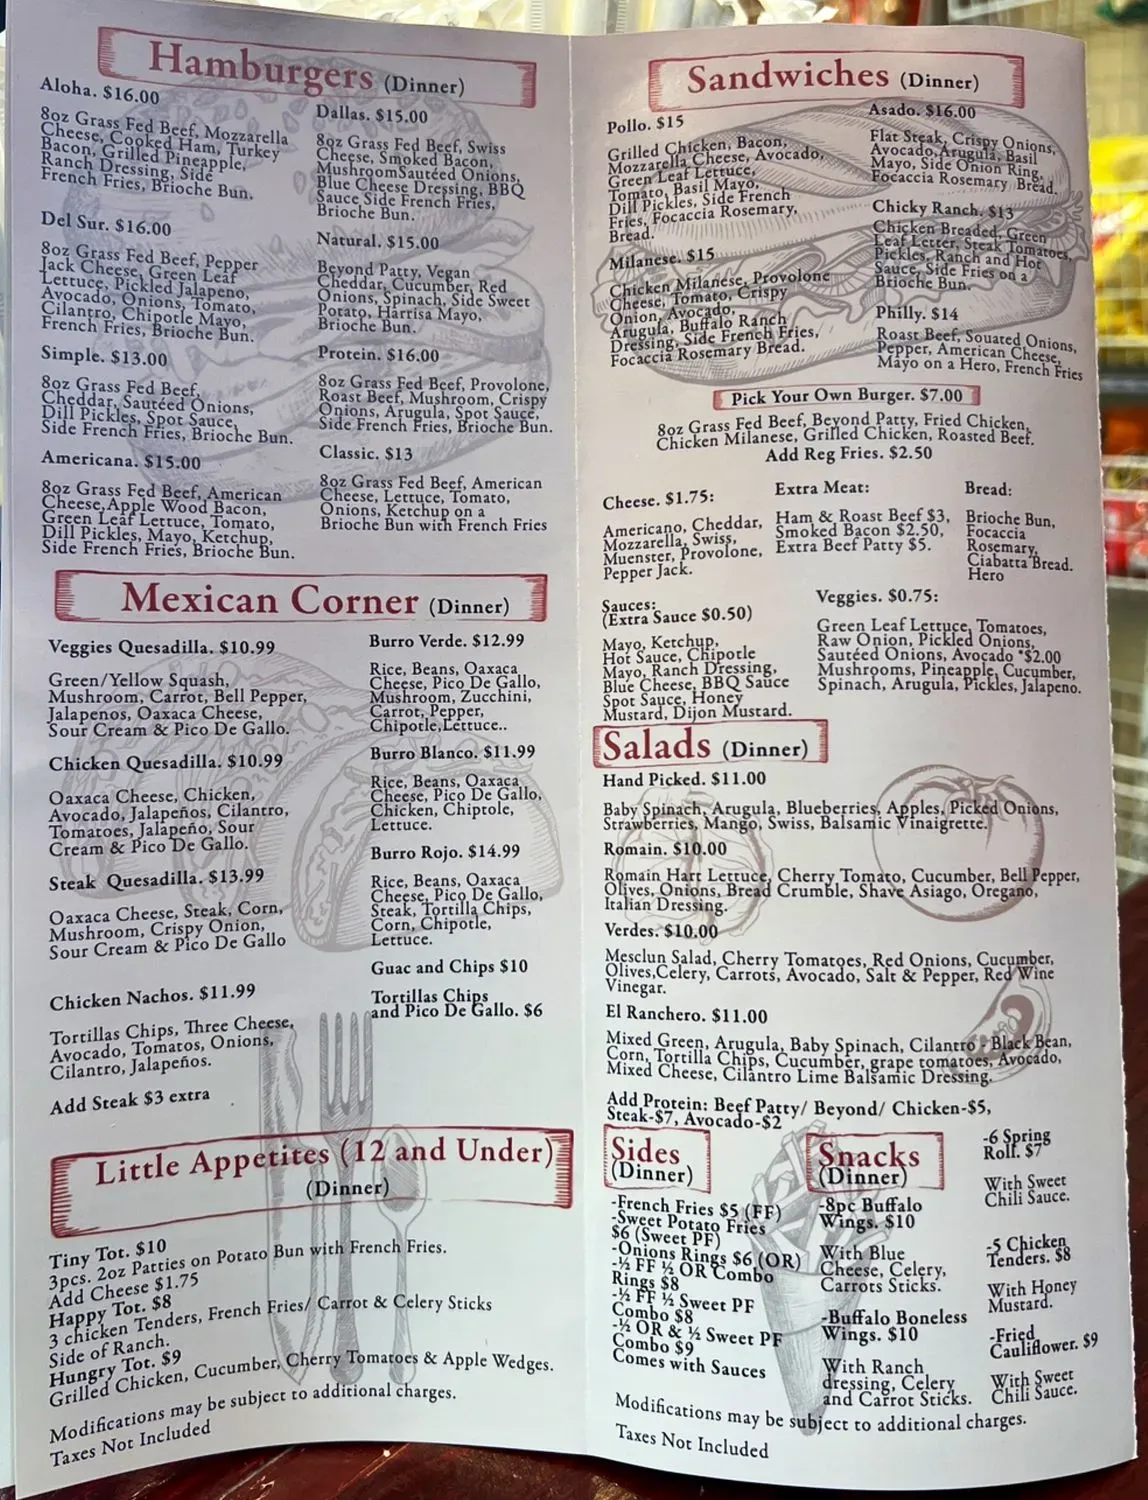 Hamburgers (Dinner)
Aloha. $16.00
8oz Grass Fed Beef, Mozzarella
Cheese, Cooked Ham, Turkey
Bacon, Grilled Pineapple,
Ranch Dressing, Side
French Fries, Brioche Bun.
Del Sur. $16.00
8oz Grass Fed Beef, Pepper
Jack Cheese, Green Leaf
Lettuce, Pickled Jalapeno,
Avocado, Onions, Tomato,
Cilantro, Chipotle Mayo,
French Fries, Brioche Bun.
Simple. $13.00
8oz Grass Fed Beef,
Cheddar, Sautéed Onions,
Dill Pickles, Spot Sauce,
Side French Fries, Brioche Bun.
Americana. $15.00
8oz Grass Fed Beef, American
Cheese,Apple Wood Bacon,
Green Leaf Lettuce, Tomato,
Dill Pickles, Mayo, Ketchup,
Side French Fries, Brioche Bun.
Dallas. $15.00
8oz Grass Fed Beef, Swiss
Cheese, Smoked Bacon,
MushroomSautéed Onions,
Blue Cheese Dressing, BBQ
Sauce Side French Fries,
Brioche Bun.
Natural. $15.00
Beyond Patty, Vegan
Cheddar, Cucumber, Red
Onions, Spinach, Side Sweet
Potato, Harrisa Mayo,
Brioche Bun.
Protein. $16.00
8oz Grass Fed Beef, Provolone,
Roast Beef, Mushroom, Crispy
Onions, Arugula, Spot Sauce,
Side French Fries, Brioche Bun.
Classic. $13
8oz Grass Fed Beef, American
Cheese, Lettuce, Tomato,
Onions, Ketchup on a
Brioche Bun with French Fries
Mexican Corner (Dinner)
Veggies Quesadilla. $10.99
Green/Yellow Squash,
Mushroom, Carrot, Bell Pepper,
Jalapenos, Oaxaca Cheese,
Sour Cream & Pico De Gallo.
Chicken Quesadilla. $10.99
Oaxaca Cheese, Chicken,
Avocado, Jalapeños, Cilantro,
Tomatoes, Jalapeño, Sour
Cream & Pico De Gallo.
Steak Quesadilla. $13.99
Oaxaca Cheese, Steak, Corn,
Mushroom, Crispy Onion,
Sour Cream & Pico De Gallo
Chicken Nachos. $11.99
Tortillas Chips, Three Cheese,
Avocado, Tomatos, Onions,
Cilantro, Jalapeños.
Add Steak $3 extra
Burro Verde. $12.99
Rice, Beans, Oaxaca
Cheese, Pico De Gallo,
Mushroom, Zucchini,
Carrot, Pepper,
Chipotle,Lettuce..
Burro Blanco. $11.99
Rice, Beans, Oaxaca
Cheese, Pico De Gallo,
Chicken, Chiptole,
Lettuce.
Burro Rojo. $14.99
Rice, Beans, Oaxaca
Cheese, Pico De Gallo,
Steak, Tortilla Chips,
Corn, Chipotle,
Lettuce.
Guac and Chips $10
Tortillas Chips
and Pico De Gallo. $6
Little Appetites (12 and Under)
(Dinner)
Tiny Tot. $10
3pcs. 2oz Patties on Potato Bun with French Fries.
Add Cheese $1.75
Happy Tot. $8
3 chicken Tenders, French Fries/ Carrot & Celery Sticks
Side of Ranch.
Hungry Tot. $9
Grilled Chicken, Cucumber, Cherry Tomatoes & Apple Wedges.
Modifications may be subject to additional charges.
Taxes Not Included
Sandwiches (Dinner)
Pollo. $15
Grilled Chicken, Bacon,
Mozzarella Cheese, Avocado,
Green Leaf Lettuce,
Tomato, Basil Mayo,
Dill Pickles, Side French
Fries, Focaccia Rosemary,
Bread.
Milanese. $15
Chicken Milanese, Provolone
Cheese, Tomato, Crispy
Onion, Avocado,
Arugula, Buffalo Ranch
Dressing, Side French Fries,
Focaccia Rosemary Bread.
Asado. $16.00
Flat Steak, Crispy Onions,
Avocado,Arugula, Basil
Mayo, Side Onion Ring,
Focaccia Rosemary Bread.
Chicky Ranch. $13
Chicken Breaded, Green
Leaf Letter, Steak Tomatoes,
Pickles, Ranch and Hot
Sauce, Side Fries on a
Brioche Bun.
Philly. $14
Roast Beef, Souated Onions,
Pepper, American Cheese,
Mayo on a Hero, French Fries
Pick Your Own Burger. $7.00
8oz Grass Fed Beef, Beyond Patty, Fried Chicken,
Chicken Milanese, Grilled Chicken, Roasted Beef.
Add Reg Fries. $2.50
Cheese. $1.75:
Americano, Cheddar,
Mozzarella, Swiss,
Muenster, Provolone,
Pepper Jack.
Extra Meat:
Ham & Roast Beef $3,
Smoked Bacon $2.50,
Extra Beef Patty $5.
Bread:
Brioche Bun,
Focaccia
Rosemary,
Ciabatta Bread.
Hero
Sauces:
(Extra Sauce $0.50)
Mayo, Ketchup,
Hot Sauce, Chipotle
Mayo, Ranch Dressing,
Blue Cheese, BBQ Sauce
Spot Sauce, Honey
Mustard, Dijon Mustard.
Veggies. $0.75:
Green Leaf Lettuce, Tomatoes,
Raw Onion, Pickled Onions,
Sautéed Onions, Avocado *$2.00
Mushrooms, Pineapple, Cucumber,
Spinach, Arugula, Pickles, Jalapeno.
Salads (Dinner)
Hand Picked. $11.00
Baby Spinach, Arugula, Blueberries, Apples, Picked Onions,
Strawberries, Mango, Swiss, Balsamic Vinaigrette.
Romain. $10.00
Romain Hart Lettuce, Cherry Tomato, Cucumber, Bell Pepper,
Olives, Onions, Bread Crumble, Shave Asiago, Oregano,
Italian Dressing.
Verdes. $10.00
Mesclun Salad, Cherry Tomatoes, Red Onions, Cucumber,
Olives,Celery, Carrots, Avocado, Salt & Pepper, Red Wine
Vinegar.
El Ranchero. $11.00
Mixed Green, Arugula, Baby Spinach, Cilantro - Black Bean,
Corn, Tortilla Chips, Cucumber, grape tomatoes, Avocado,
Mixed Cheese, Cilantro Lime Balsamic Dressing.
Add Protein: Beef Patty/ Beyond/ Chicken-$5,
Steak-$7, Avocado-$2
Sides
(Dinner)
-French Fries $5 (FF)
-Sweet Potato Fries
$6 (Sweet PF)
-Onions Rings $6 (OR)
-½ FF ½ OR Combo
Rings $8
-½ FF ½ Sweet PF
Combo $8
-½ OR & ½ Sweet PF
Combo $9
Comes with Sauces
Snacks
(Dinner)
-8pc Buffalo
Wings. $10
With Blue
Cheese, Celery,
Carrots Sticks.
-Buffalo Boneless
Wings. $10
With Ranch
dressing, Celery
and Carrot Sticks.
-6 Spring
Roll. $7
With Sweet
Chili Sauce.
-5 Chicken
Tenders. $8
With Honey
Mustard.
-Fried
Cauliflower. $9
With Sweet
Chili Sauce.
Modifications may be subject to additional charges.
Taxes Not Included